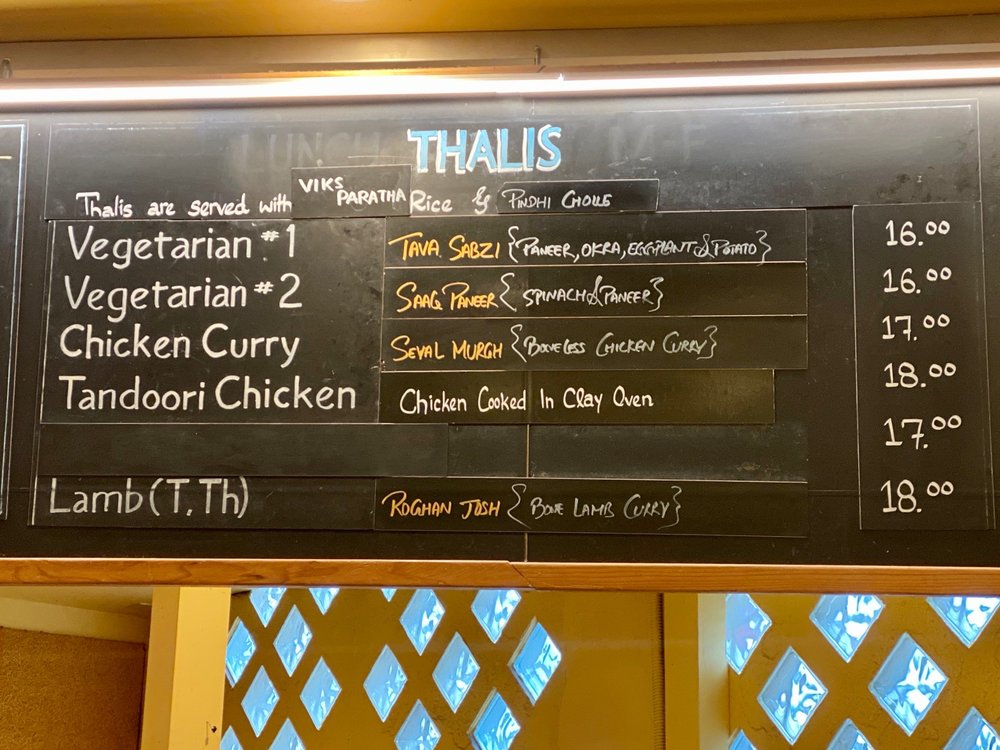 LUNCH THALIS M-F
Thalis are served with VIKS PARATHA Rice & PINDHI CHOLE
Vegetarian #1 TAVA SABZI {PANEER, OKRA, EGGPLANT & POTATO} 16.00
Vegetarian #2 SAAG PANEER {SPINACH & PANEER} 16.00
Chicken Curry SEVAL MURGH {BONELESS CHICKEN CURRY} 17.00
Tandoori Chicken Chicken Cooked In Clay Oven 18.00
17.00
Lamb (T, Th) ROGHAN JOSH {BONE LAMB CURRY} 18.00